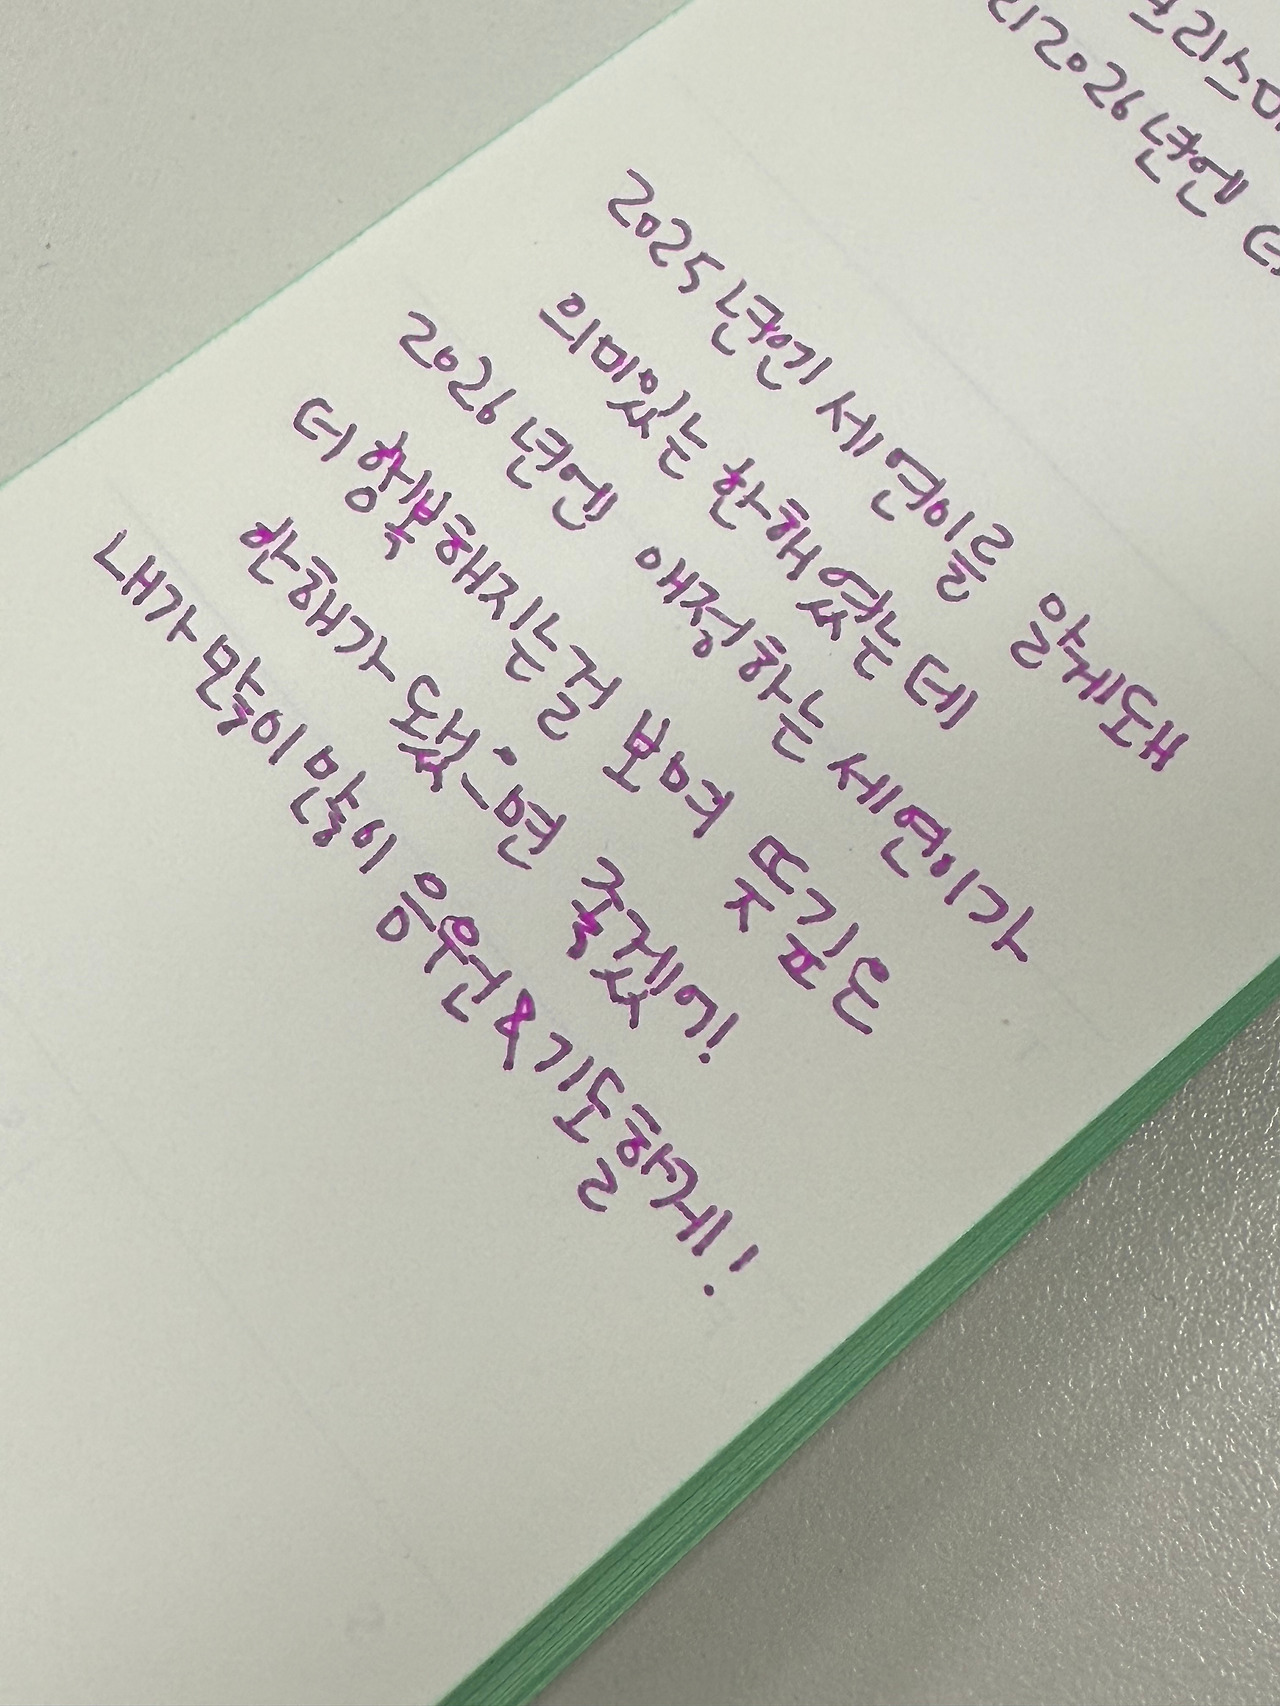 크리스마
2026년엔 더
2025년인 세연이를 알게돼
의미있는 한해였는데
2026년엔 애정하는 세연이가
더 행복해지는걸 보며 뜻깊은
한해가 됐으면 좋겠어!
내가 많이많이 응원&기도할게!